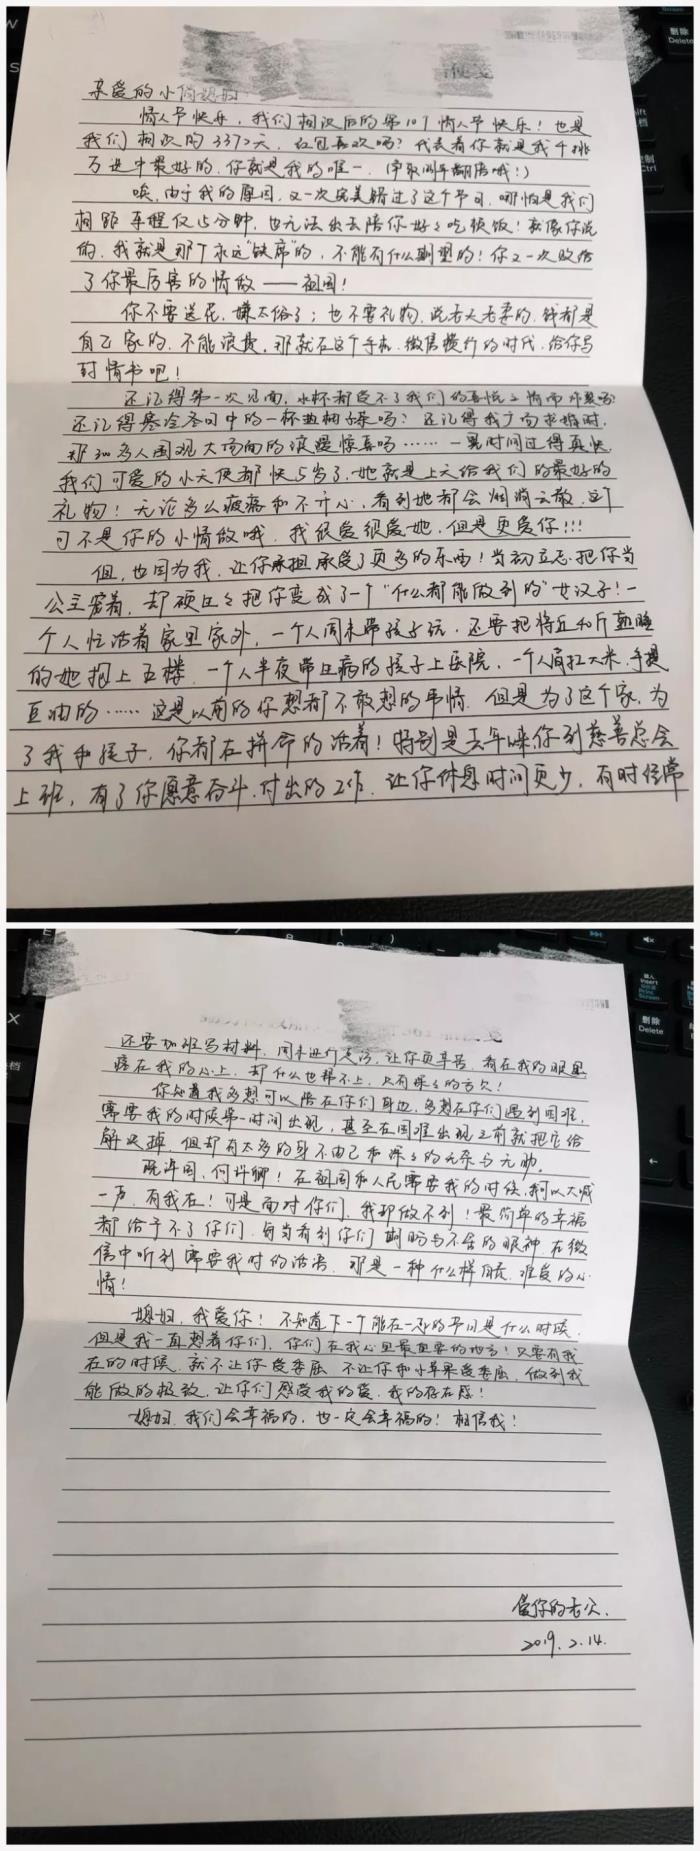 便笺
亲爱的小何媳妇：
情人节快乐，我们相识后的第10个情人节快乐！也是
我们相识的3372天，红包喜欢吗？代表着你就是我千挑
万选中最好的，你就是我的唯一。(争取明年翻倍哦！)
唉，由于我的原因，又一次完美错过了这个节日，哪怕是我们
相距车程仅15分钟，也无法出去陪你好好吃顿饭！就像你说
的，我就是那个永远"缺席"的，不能有什么期望的！你又一次败给
了你最厉害的情敌——祖国！
你不要送花，嫌太俗了；也不要礼物，说老夫老妻的，钱都是
自己家的，不能浪费，那就在这个手机、微信横行的时代，给你写
封情书吧！
还记得第一次见面，水杯都受不了我们的喜悦之情而炸裂吗？
还记得寒冷冬日中的一杯热柚子茶吗？还记得我广场求婚时，
那300多人围观大场面的浪漫惊喜吗……一晃时间过得真快，
我们可爱的小天使都快5岁了，她就是上天给我们的最好的
礼物！无论多么疲惫和不开心，看到她都会烟消云散，这个
可不是你的小情敌哦，我很爱很爱她，但是更爱你！！！
但，也因为我，让你承担承受了更多的东西！当初立志把你当
公主宠着，却硬生生把你变成了一个"什么都能做到的"女汉子！一
个人忙活着家里家外，一个人周末带孩子玩，还要把将近40斤熟睡
的她抱上五楼，一个人半夜带生病的孩子上医院，一个人肩扛大米，手提
豆油的……这是以前的你想都不敢想的事情，但是为了这个家，为
了我和孩子，你都在拼命的活着！特别是去年末你到慈善总会
上班，有了你愿意奋斗、付出的工作，让你休息时间更少，有时经常
还要加班写材料，周末进行走访，让你更辛苦，看在我的眼里
疼在我的心上，却什么也帮不上，只有深深的亏欠！
你知道我多想可以陪在你们身边，多想在你们遇到困难，
需要我的时候第一时间出现，甚至在困难出现之前就把它给
解决掉，但却有太多的身不由己和深深的无奈与无助。
既许国，何许卿！在祖国和人民需要我的时候，我可以大喊
一声，有我在！可是面对你们，我却做不到！最简单的幸福
都给予不了你们，每当看到你们期盼与不舍的眼神，在微
信中听到需要我时的话语，那是一种什么样自责、难受的心
情！
媳妇，我爱你！不知道下一个能在一起的节日是什么时候，
但是我一直想着你们，你们在我心里最重要的地方！只要有我
在的时候，就不让你受委屈，不让你和小苹果受委屈，做到我
能做的极致，让你们感受我的爱，我的存在感！
媳妇，我们会幸福的，也一定会幸福的！相信我！
爱你的老公.
2019.2.14.